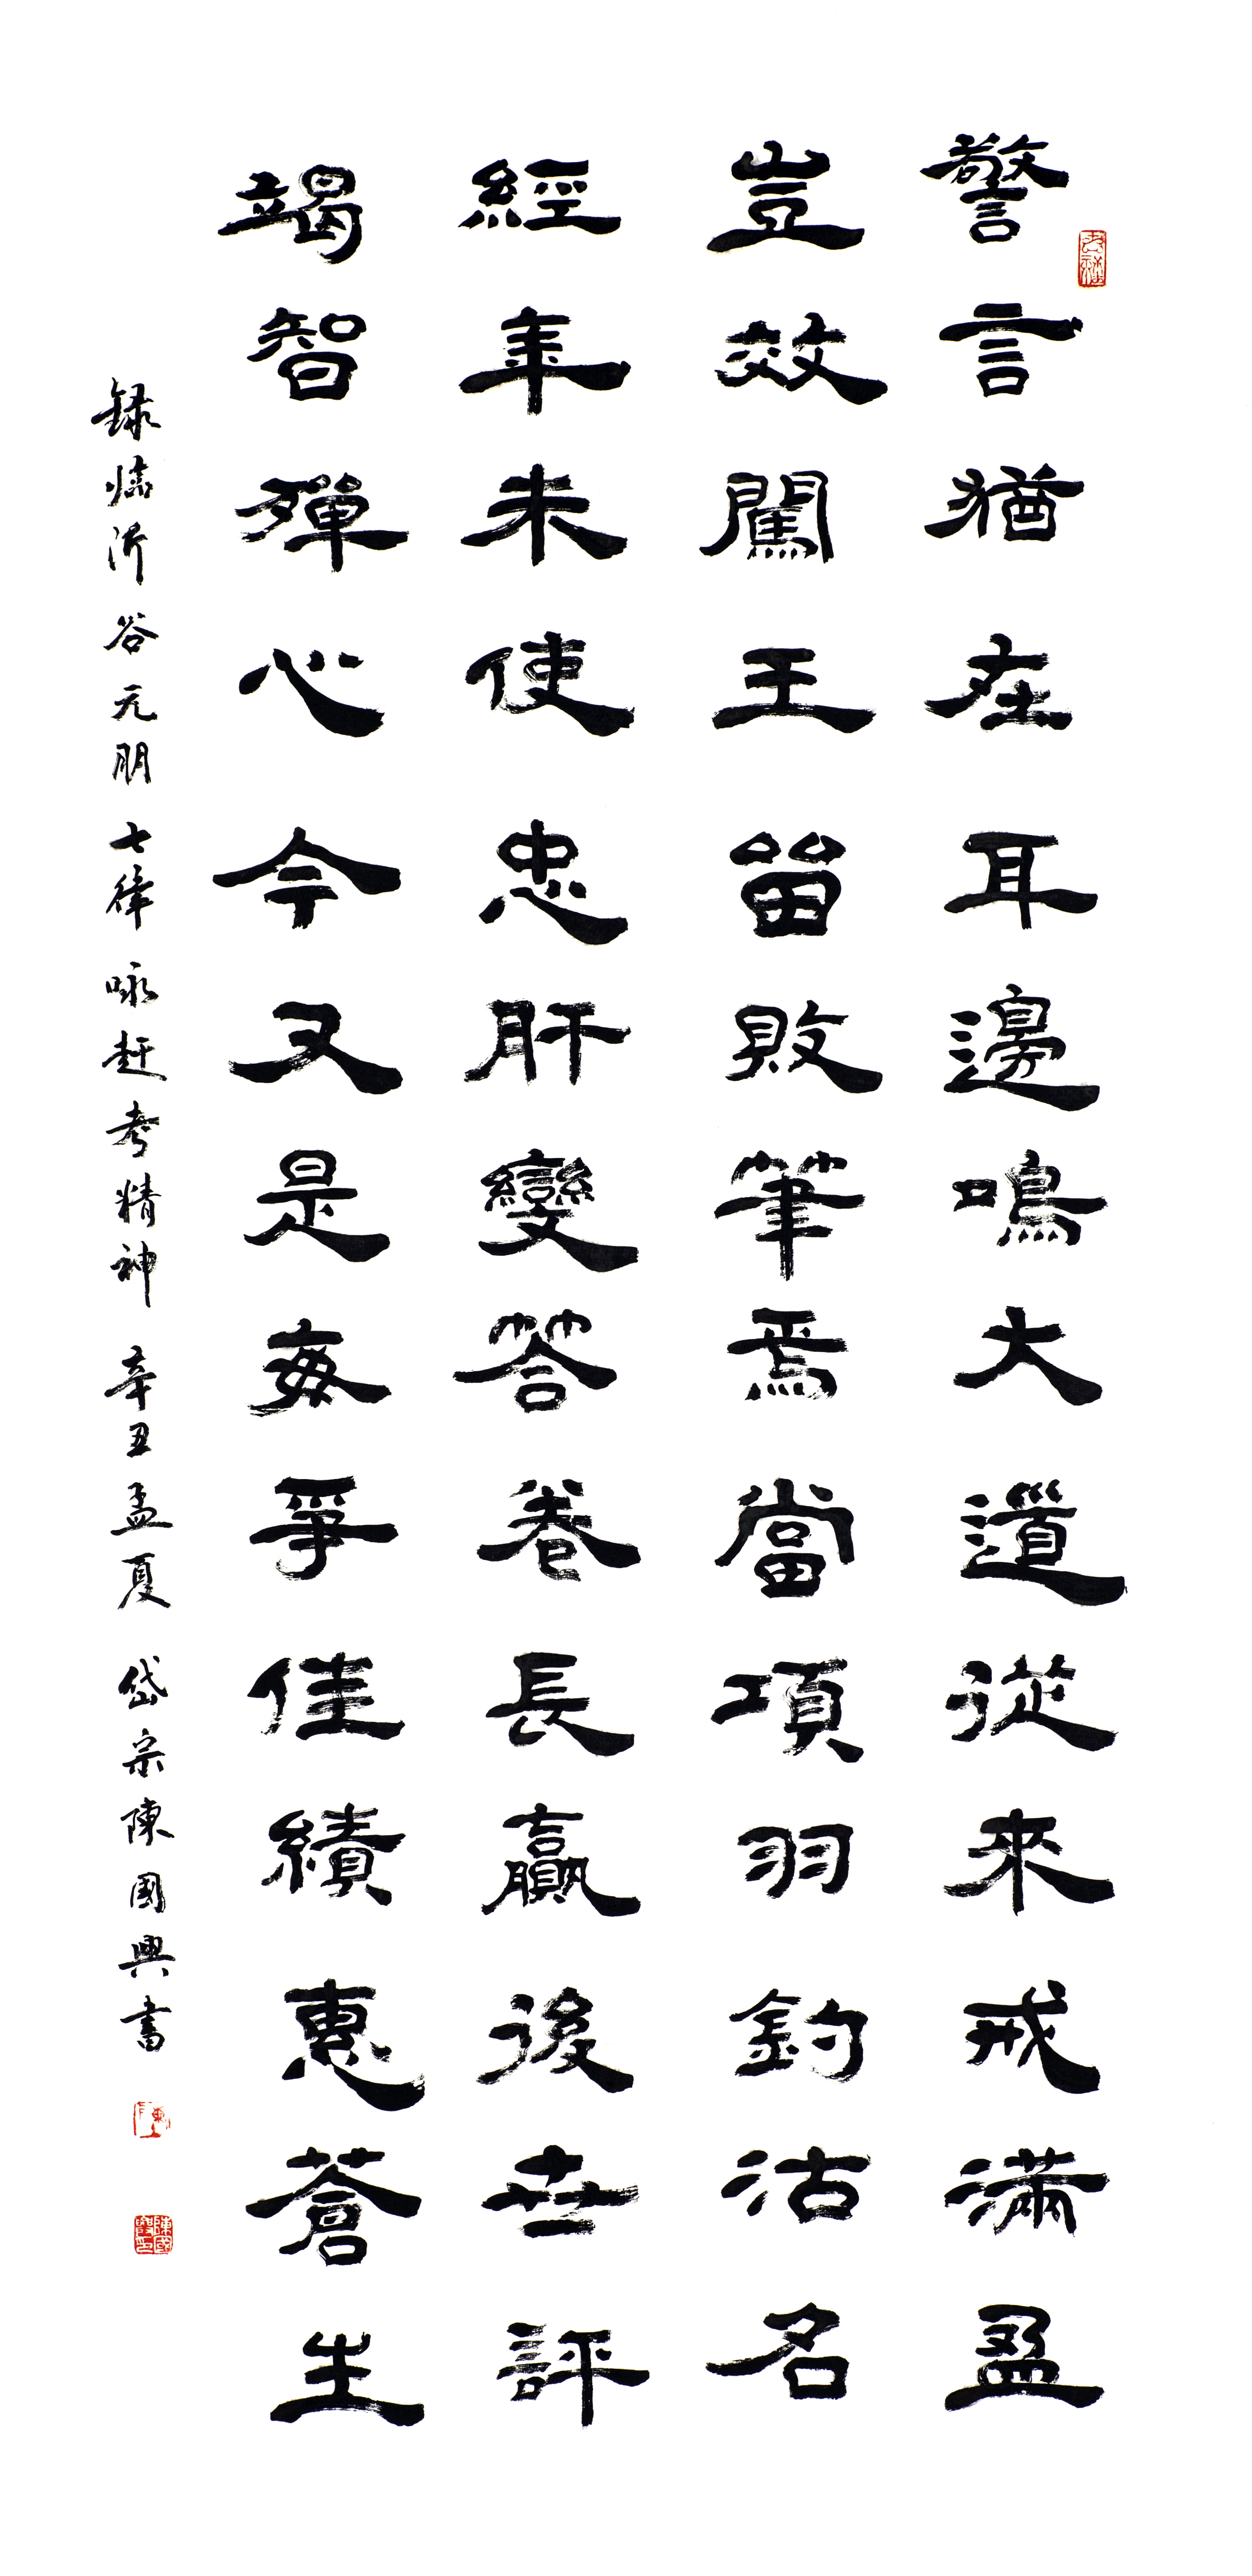 警言猶在耳邊鳴大道從來戒滿盈
豈效闖王留敗筆焉當項羽釣沽名
經年未使忠肝變答卷長贏後世評
竭智殫心今又是每爭佳績惠蒼生
録臨沂谷元朋七律咏赶考精神 辛丑孟夏 岱宗陳國興書